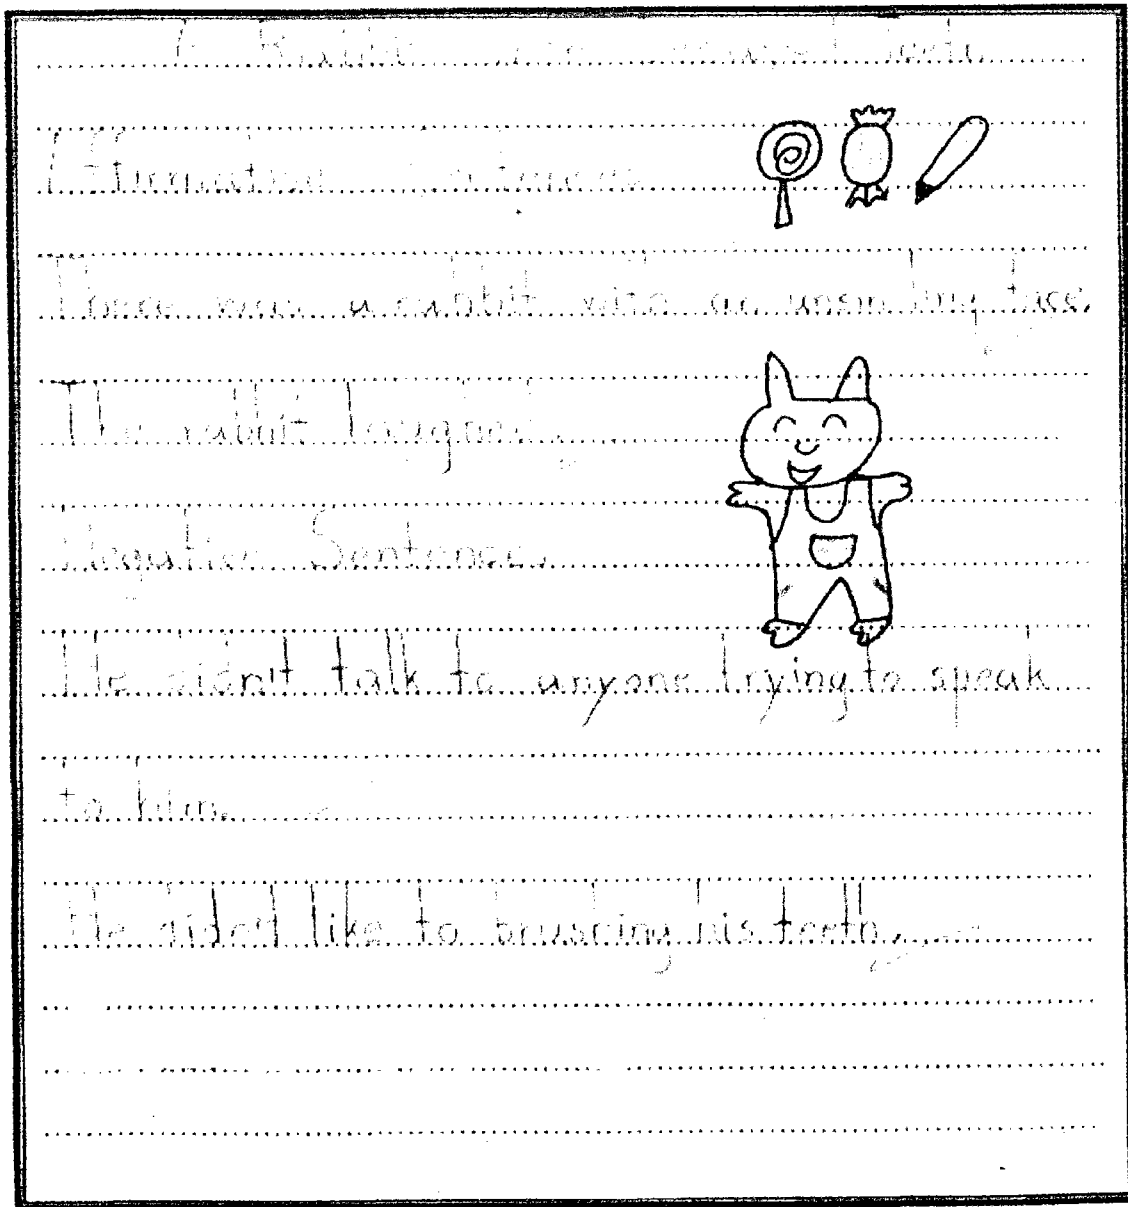 A Rabbit teeth
Affirmative sentences
There was a rabbit with an unsmiling face.
The rabbit laughed.
Negative Sentences.
He didn't talk to anyone trying to speak
to him.
He didn't like to brushing his teeth.